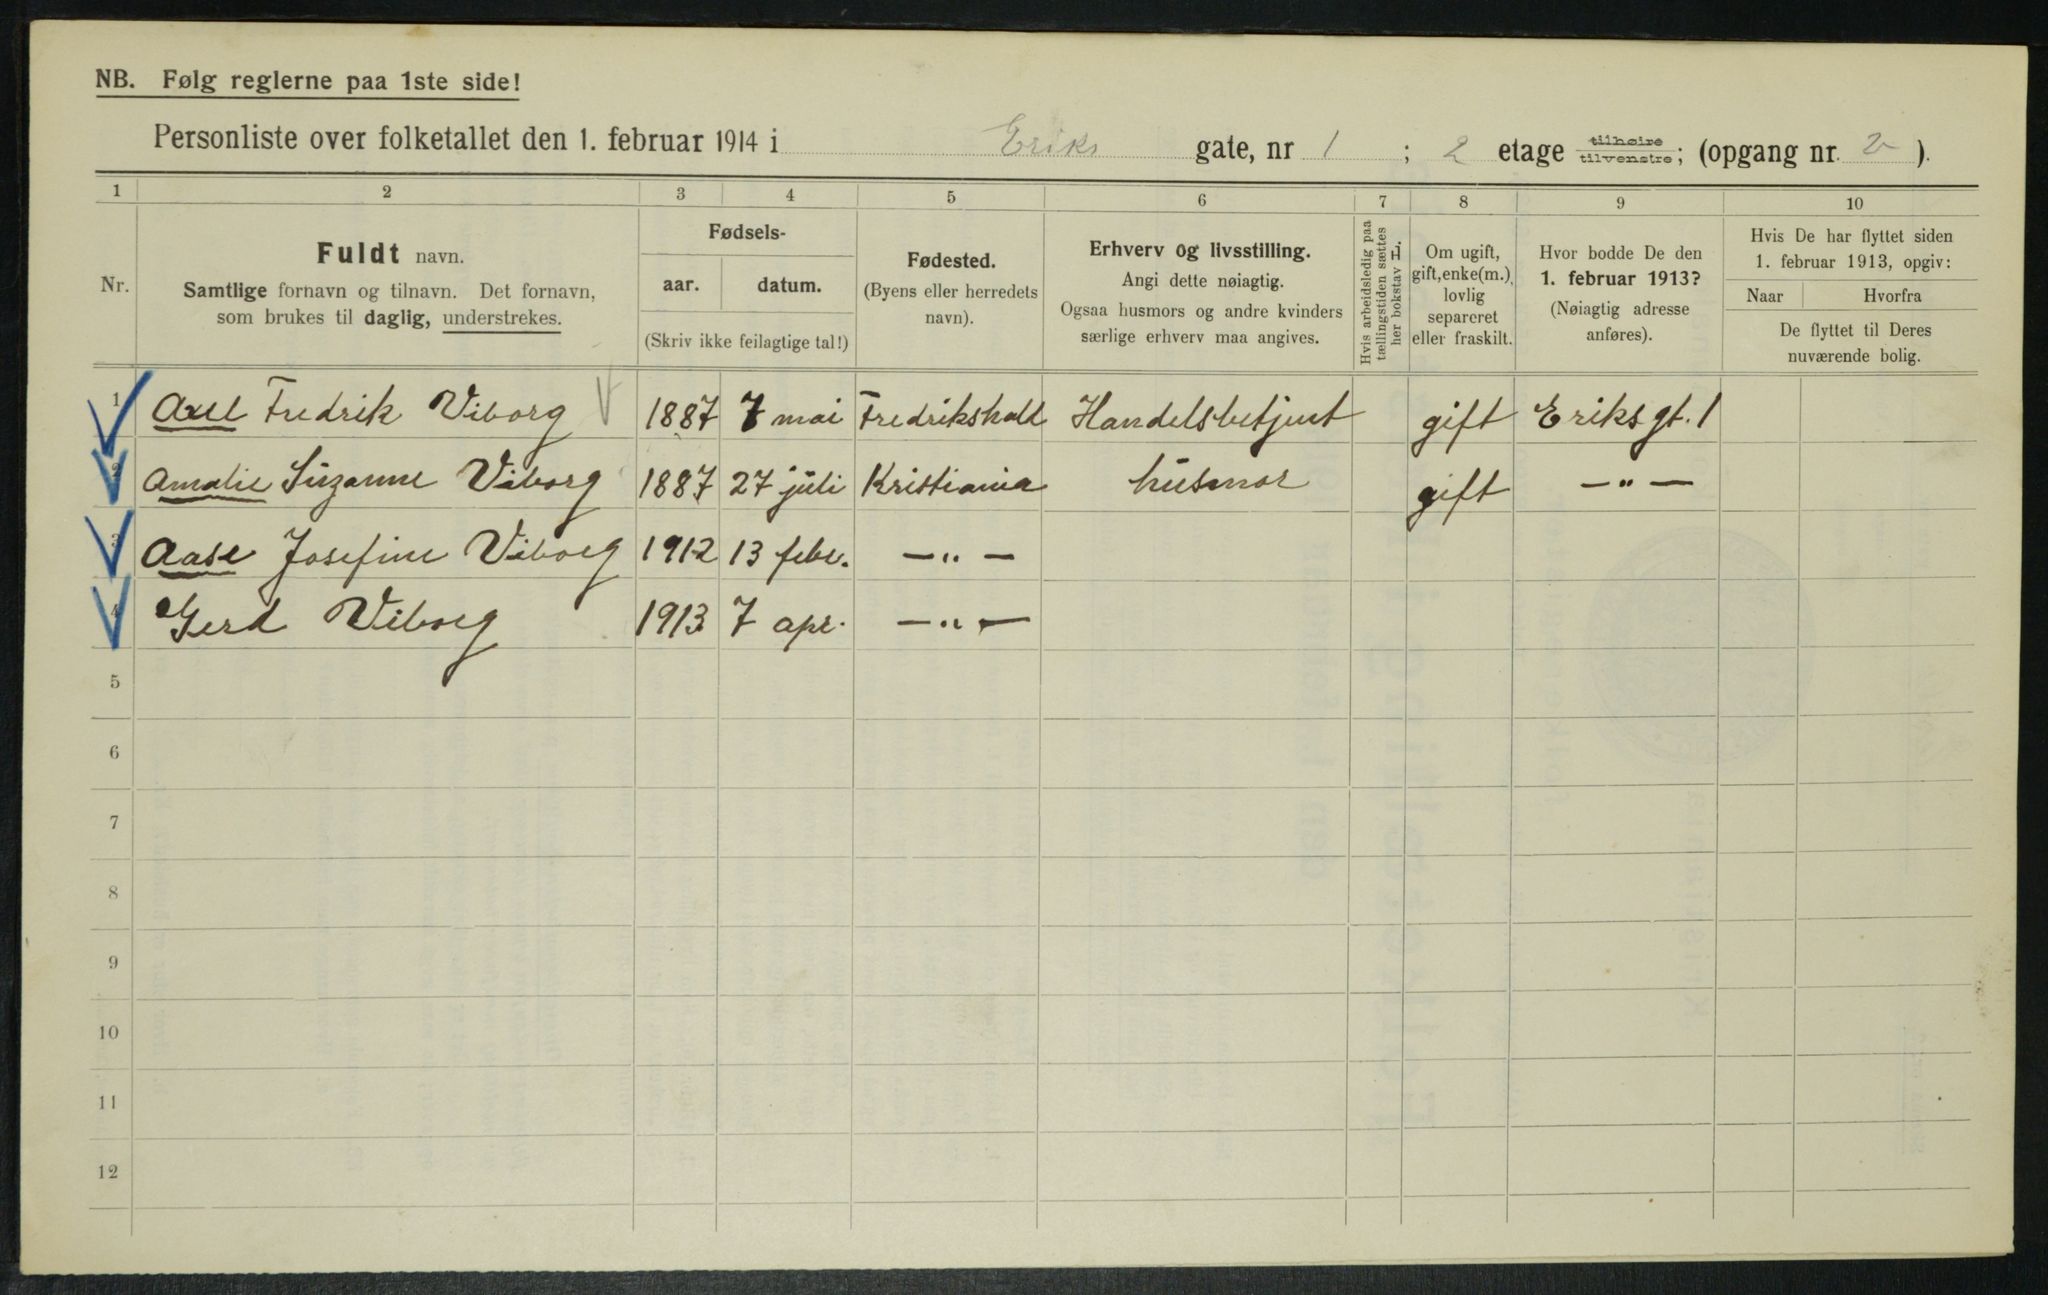 NB. Følg reglerne paa 1ste side!
Personliste over folketallet den 1. februar 1914 i Eriks gate, nr 1 ; 2 etage tilhøire tilvenstre; (opgang nr. 2 ).
1 2 3 4 5 6 7 8 9 10
Nr.
Fuldt navn.
Samtlige fornavn og tilnavn. Det fornavn,
som brukes til daglig, understrekes.
Fødsels-
aar. datum.
(Skriv ikke feilagtige tal!)
Fødested.
(Byens eller herredets
navn).
Erhverv og livsstilling.
Angi dette nøiagtig.
Ogsaa husmors og andre kvinders
særlige erhverv maa angives.
Hvis arbeidsledig paa
tællingstiden sættes
her bokstav L.
Om ugift,
gift, enke(m.),
lovlig
separeret
eller fraskilt.
Hvor bodde De den
1. februar 1913?
(Nøiagtig adresse
anføres).
Hvis De har flyttet siden
1. februar 1913, opgiv:
Naar Hvorfra
De flyttet til Deres
nuværende bolig.
1 Axel Fredrik Viborg 1887 7 mai Fredrikshald Handelsbetjent gift Eriksgt. 1
2 Amalie Súzanne Viborg 1887 27 júli Kristiania húsmor gift — " —
3 Aase Josefine Viborg 1912 13 febr. — " —
4 Gerd Viborg 1913 7 apr. — " —
5
6
7
8
9
10
11
12